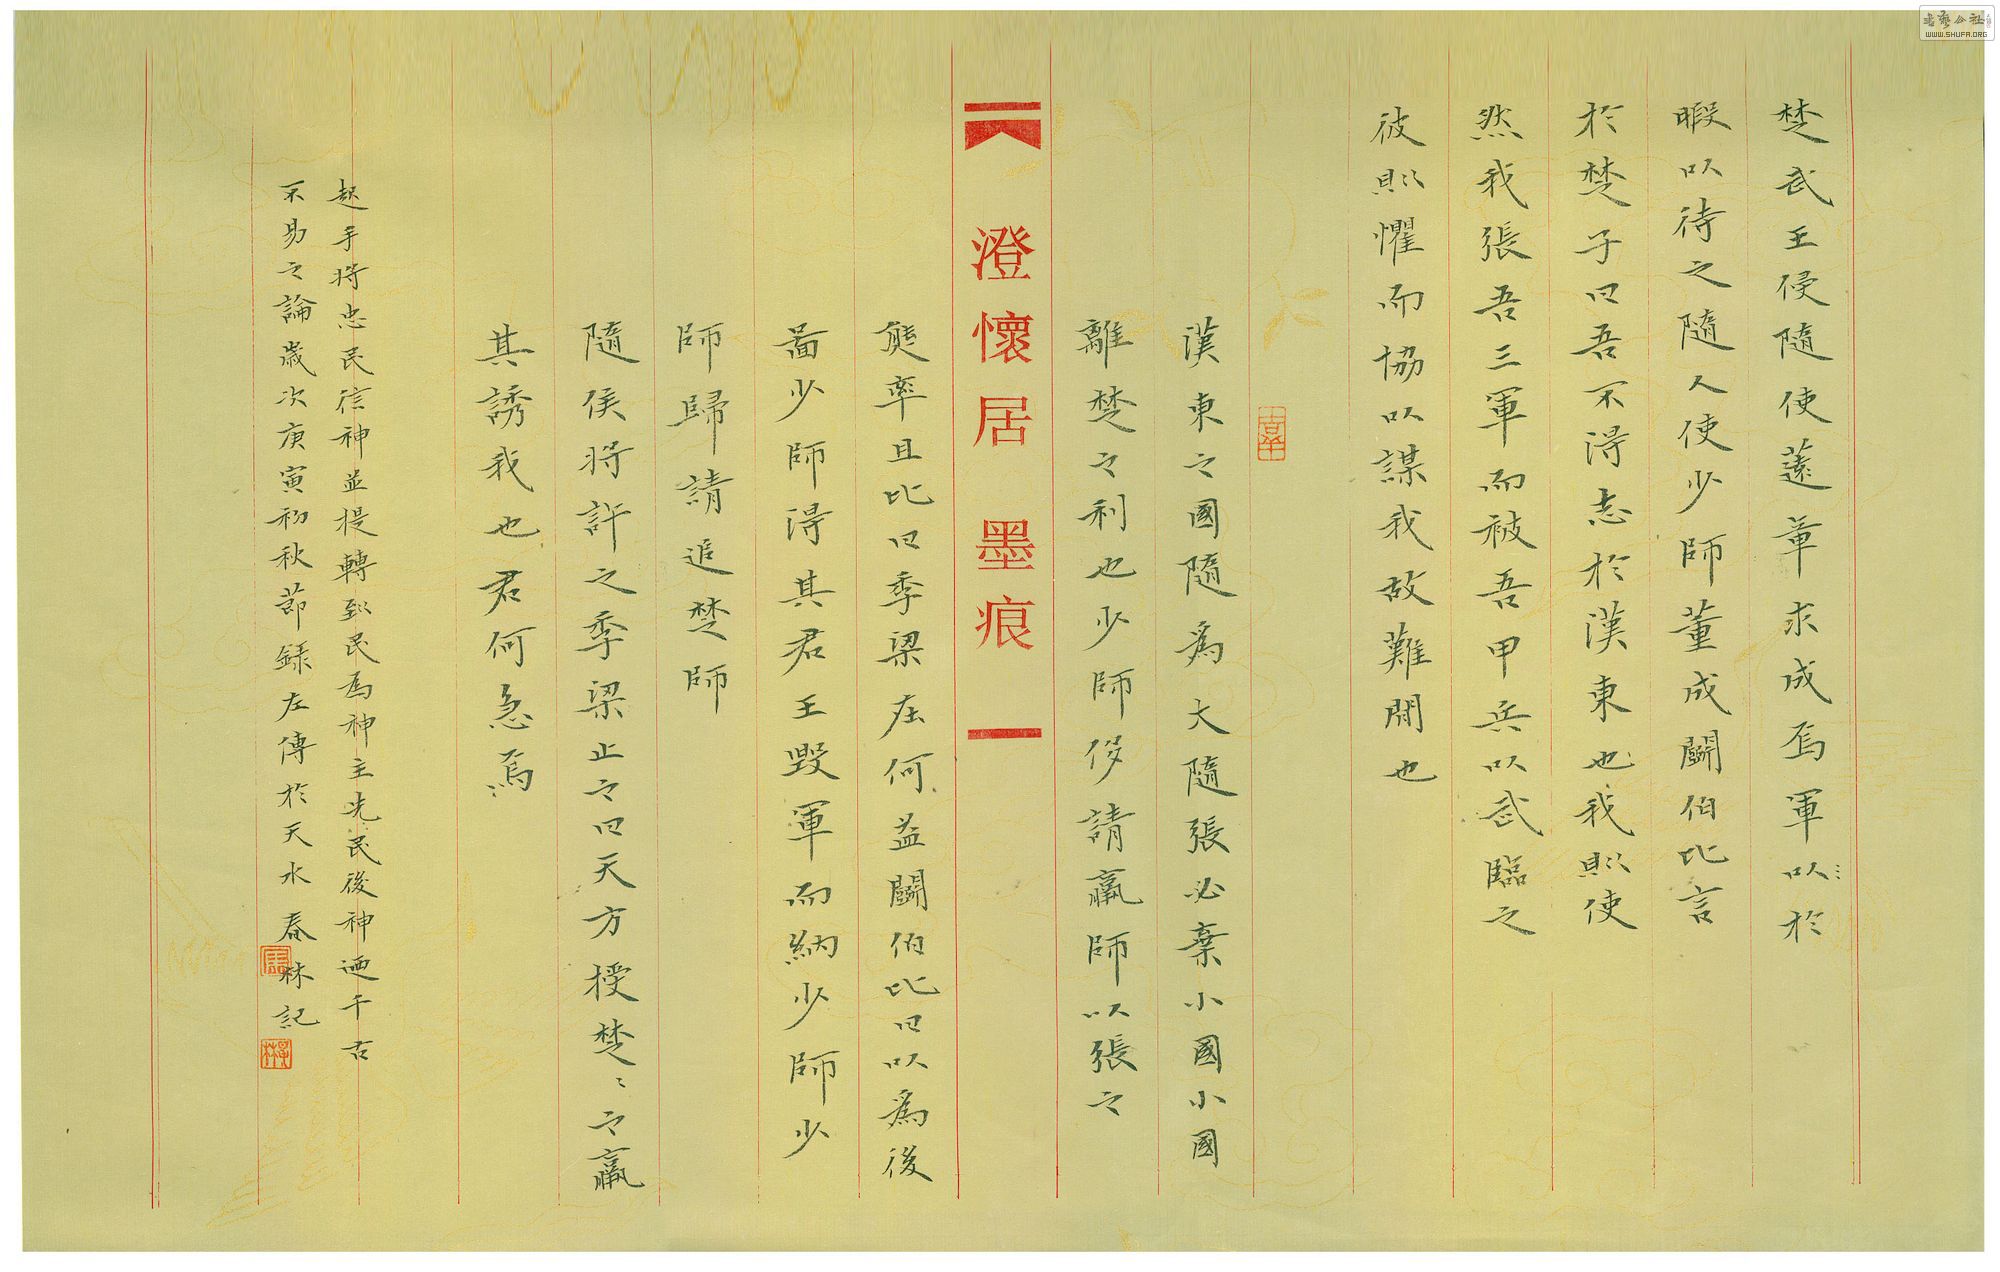 楚武王侵隨使薳章求成焉軍以於
瑕以待之隨人使少師董成鬭伯比言
於楚子曰吾不得志於漢東也我則使
然我張吾三軍而被吾甲兵以武臨之
彼則懼而協以謀我故難間也
漢東之國隨為大隨張必棄小國小國
離楚之利也少師侈請羸師以張之
澄懷居 墨痕
熊率且比曰季梁在何益鬭伯比曰以為後
圖少師得其君王毀軍而納少師少
師歸請追楚師
隨侯將許之季梁止之曰天方授楚〻之羸
其誘我也君何急焉
起手將忠民信神並提轉到民為神主先民後神迺千古
不易之論歲次庚寅初秋節録左傳於天水春林記
書藝公社
WWW.SHUFA.ORG